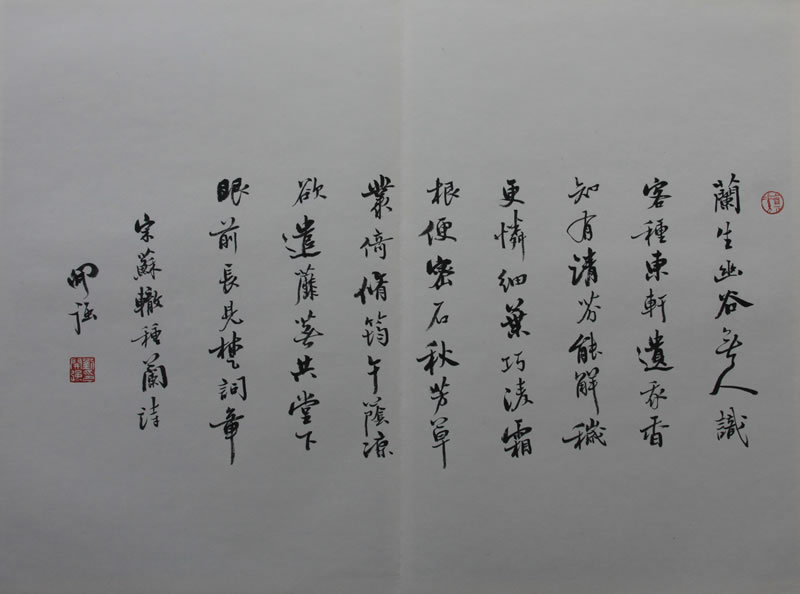 蘭生幽谷無人識
客種東軒遺我香
知有清芬能解穢
更憐細葉巧淩霜
根便密石秋芳草
叢倚脩筠午蔭涼
欲遣蘼蕪共堂下
眼前長見楚詞章
宋蘇轍種蘭詩